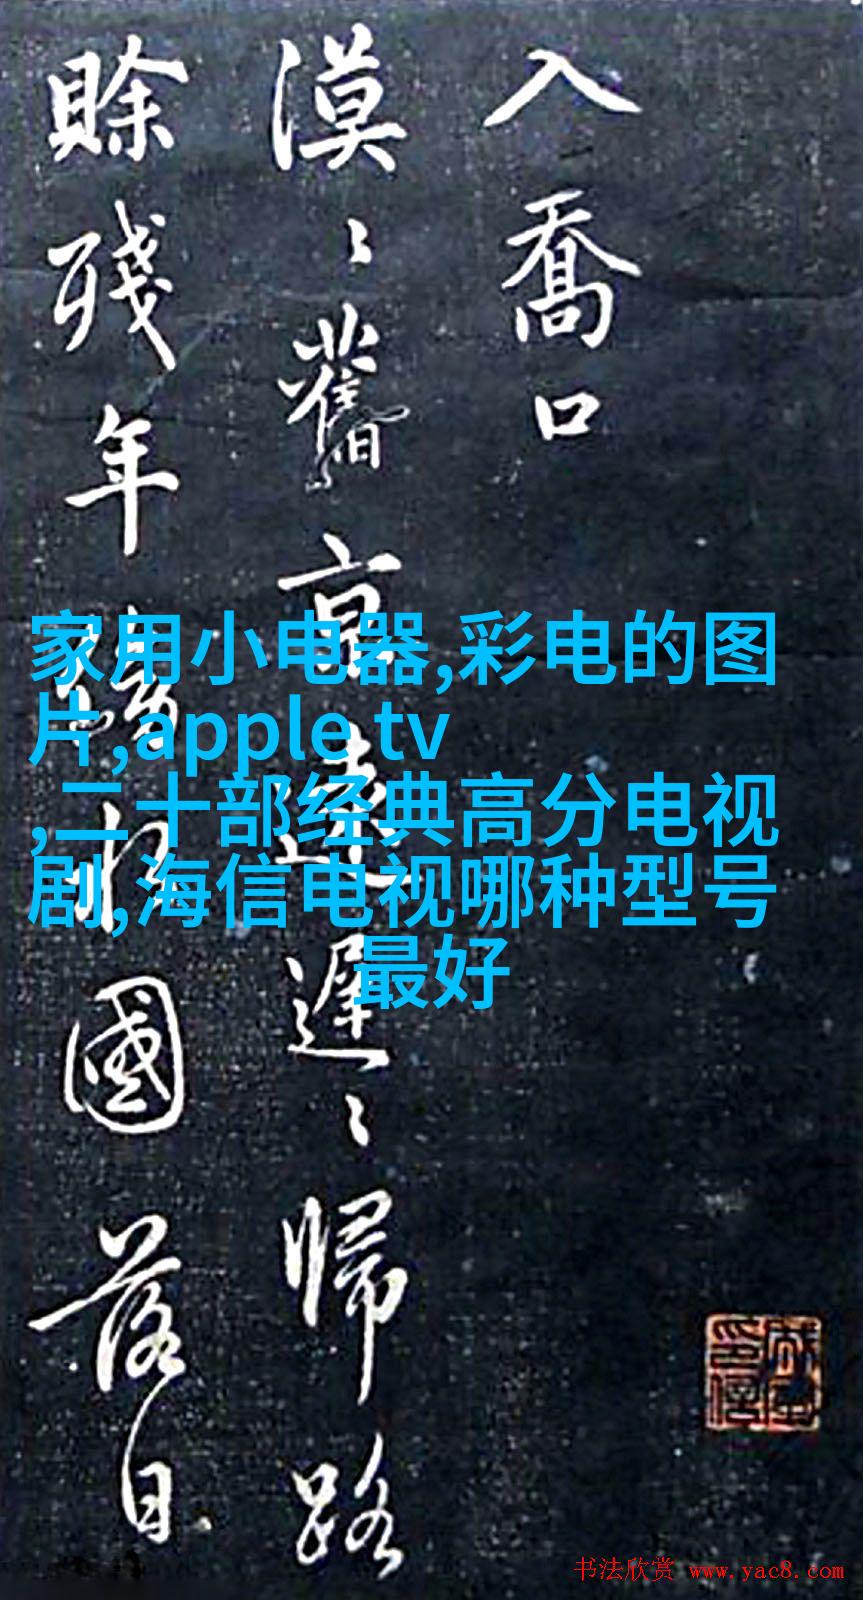 入喬口
漠〻舊京遠遲〻歸路
賒殘年傍水國落日
家用小电器,彩电的图
片,apple tv
,二十部经典高分电视
剧,海信电视哪种型号
最好
书法欣赏 www.yac8.com